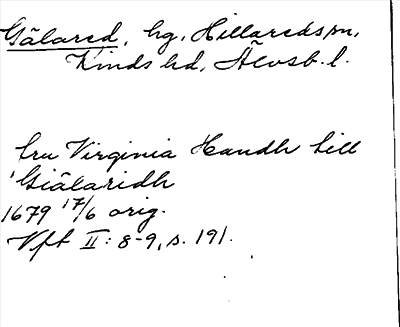 Gälared, hg, Hillareds sn,
Kinds hd, Älvsb. l.
fru Virginia Handh till
'Giälaridh
1679 17/6 orig.
Vft II: 8-9, s. 191.